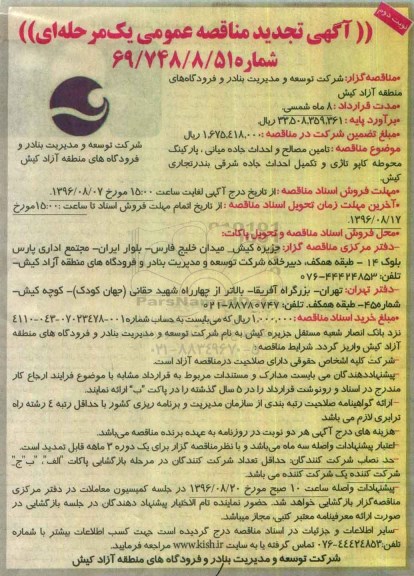 نوبت دوم
(( آگهی تجدید مناقصه عمومی یک مرحله‌ای))
شماره ۶۹/۷۴۸/۸/۵۱
•مناقصه‌گزار: شرکت توسعه و مدیریت بنادر و فرودگاه‌های
منطقه آزاد کیش
•مدت قرارداد : ۸ ماه شمسی.
•برآورد پایه : ۳۳,۵۰۸,۳۵۹,۳۶۱ ریال.
•مبلغ تضمین شرکت در مناقصه : ۱,۶۷۵,۴۱۸,۰۰۰ ریال.
موضوع مناقصه : تامین مصالح و احداث جاده میانی ، پارکینگ
محوطه کاپو تازی و تکمیل احداث جاده شرقی بندرتجاری
کیش.
شرکت توسعه و مدیریت بنادر و
فرودگاه های منطقه آزاد کیش
•مهلت فروش اسناد مناقصه : از تاریخ درج آگهی لغایت ساعت ۱۵:۰۰ مورخ ۱۳۹۶/۰۸/۰۷.
•آخرین مهلت زمان تحویل اسناد مناقصه : از تاریخ اتمام مهلت فروش اسناد تا ساعت ۱۵:۰۰مورخ
۱۳۹۶/۰۸/۱۷
•محل فروش اسناد مناقصه و تحویل پاکات:
–دفتر مرکزی مناقصه گزار: جزیره کیش_ میدان خلیج فارس– بلوار ایران– مجتمع اداری پارس
بلوک ۱۴ – طبقه همکف، دبیرخانه شرکت توسعه و مدیریت بنادر و فرودگاه های منطقه آزاد کیش–
تلفن: ۴۴۴۲۴۸۵۳–۰۷۶
–دفتر تهران: تهران– بزرگراه آفریقا– بالاتر از چهارراه شهید حقانی (جهان کودک)– کوچه کیش–
شماره۴۵– طبقه همکف. تلفن: ۸۸۷۸۰۷۴۷–۰۲۱
•مبلغ خرید اسناد مناقصه: ۱,۰۰۰,۰۰۰ ریال که می‌بایست به حساب شماره ۰۰۱–۰۷۰۲۳۴۷۸–۰۴۳–۴۱۱۰
نزد بانک انصار شعبه مستقل جزیره کیش به نام شرکت توسعه و مدیریت بنادر و فرودگاه های منطقه
آزاد کیش واریز گردد. شرایط مناقصه:
–شرکت کلیه اشخاص حقوقی دارای صلاحیت درمناقصه آزاد است.
–پیشنهاددهندگان می بایست مدارک و مستندات مربوط به قرارداد مشابه با موضوع فرایند ارجاع کار
مندرج در اسناد و رونوشت قرارداد را در ۵ سال گذشته را در پاکت "ب" ارائه نمایند.
–ارائه گواهینامه صلاحیت رتبه بندی از سازمان مدیریت و برنامه ریزی کشور با حداقل رتبه ٤ رشته راه
ترابری لازم می باشد.
–هزینه های درج آگهی هر دو نوبت در روزنامه به عهده برنده مناقصه می‌باشد.
–اعتبار پیشنهادات واصله سه ماه می‌باشد و با نظرمناقصه گزار برای یک دوره ۳ ماهه قابل تمدید است.
–حد نصاب شرکت کنندگان: حداقل تعداد شرکت کنندگان در مرحله بازگشایی پاکات "الف"، "ب"ج"
شرکت کننده یک شرکت کننده می باشد.
–پیشنهادات واصله ساعت ۱۰ صبح مورخ ۱۳۹۶/۰۸/۲۰ در جلسه کمیسیون معاملات در دفتر مرکزی
مناقصه‌گزار بازگشایی خواهد شد. حضور نماینده تام الاختیار پیشنهاد دهندگان در جلسه بازگشایی در
صورت ارائه معرفینامه معتبر کتبی، مجاز میباشد.
–سایر اطلاعات و جزئیات در اسناد مناقصه درج گردیده است جهت کسب اطلاعات بیشتر با شماره
تلفن ۴۴۴۲۴۸۵۳–۰۷۶ تماس گرفته یا به سایت www.kish.ir مراجعه فرمایید.
شرکت توسعه و مدیریت بنادر و فرودگاه های منطقه آزاد کیش